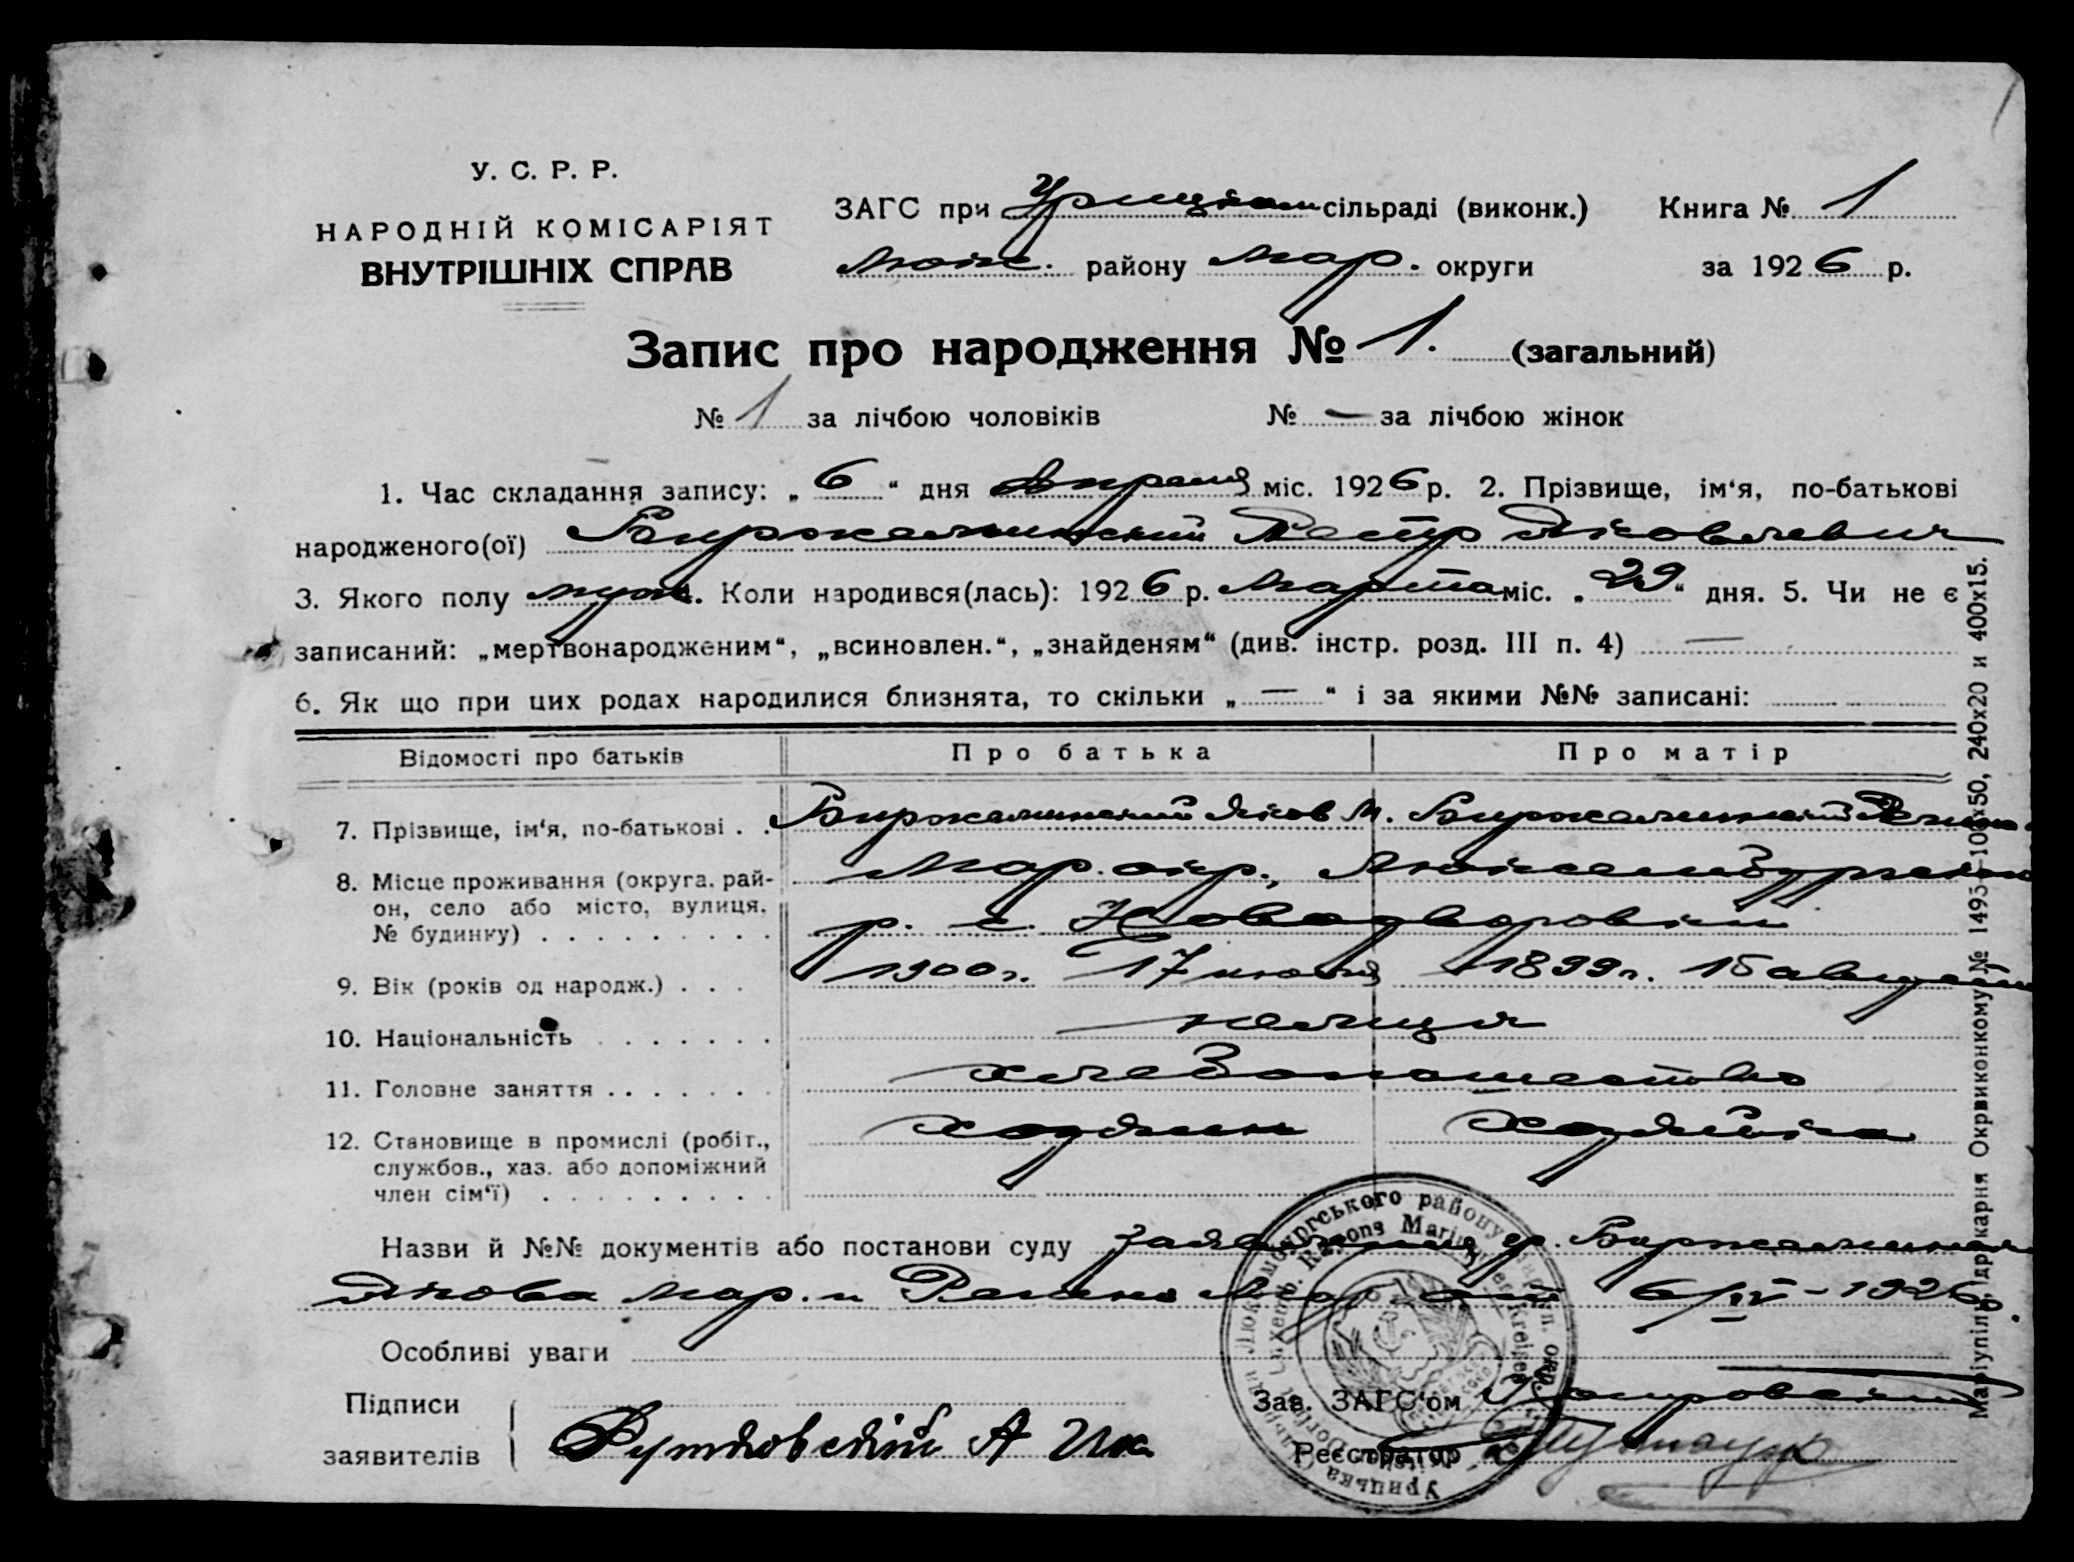 У. С. Р. Р.
НАРОДНІЙ КОМІСАРІЯТ
ВНУТРІШНІХ СПРАВ
ЗАГС при Урицком сільраді (виконк.) Книга № 1
Люкс. району Мар. округи за 1926 р.
Запис про народження № 1. (загальний)
№ 1 за лічбою чоловіків № — за лічбою жінок
1. Час складання запису: „ 6 “ дня апреля міс. 1926 р. 2. Прізвище, ім‘я, по-батькові
народженого(ої) Яковлевич
3. Якого полу муж. Коли народився(лась): 1926 р. Марта міс. „ 29 “ дня. 5. Чи не є
записаний: „мертвонародженим“, „всиновлен.“, „знайденям“ (див. інстр. розд. III п. 4) —
6. Як що при цих родах народилися близнята, то скільки „ — “ і за якими №№ записані:
Відомості про батьків Про батька Про матір
7. Прізвище, ім‘я, по-батькові . . Яков М.
8. Місце проживання (округа, рай- Мар. окр., Люксембургский
он, село або місто, вулиця, р. с. Новодворовка
№ будинку)
9. Вік (років од народж.) . . . 1900 г. 17 1899 г. 15 августа
10. Національність немцы
11. Головне заняття хлебопашество
12. Становище в промислі (робіт., хозяин хозяйка
службов., хаз. або допоміжний
член сім‘ї)
Назви й №№ документів або постанови суду заявление гр.
Якова Мар. и от 6/IV - 1926 г.
Особливі уваги
Підписи
заявителів
Зав. ЗАГС‘ом
Реєстратор
Маріупіль, друкарня Окрвиконкому № 1493-100х50, 240х20 и 400х15.